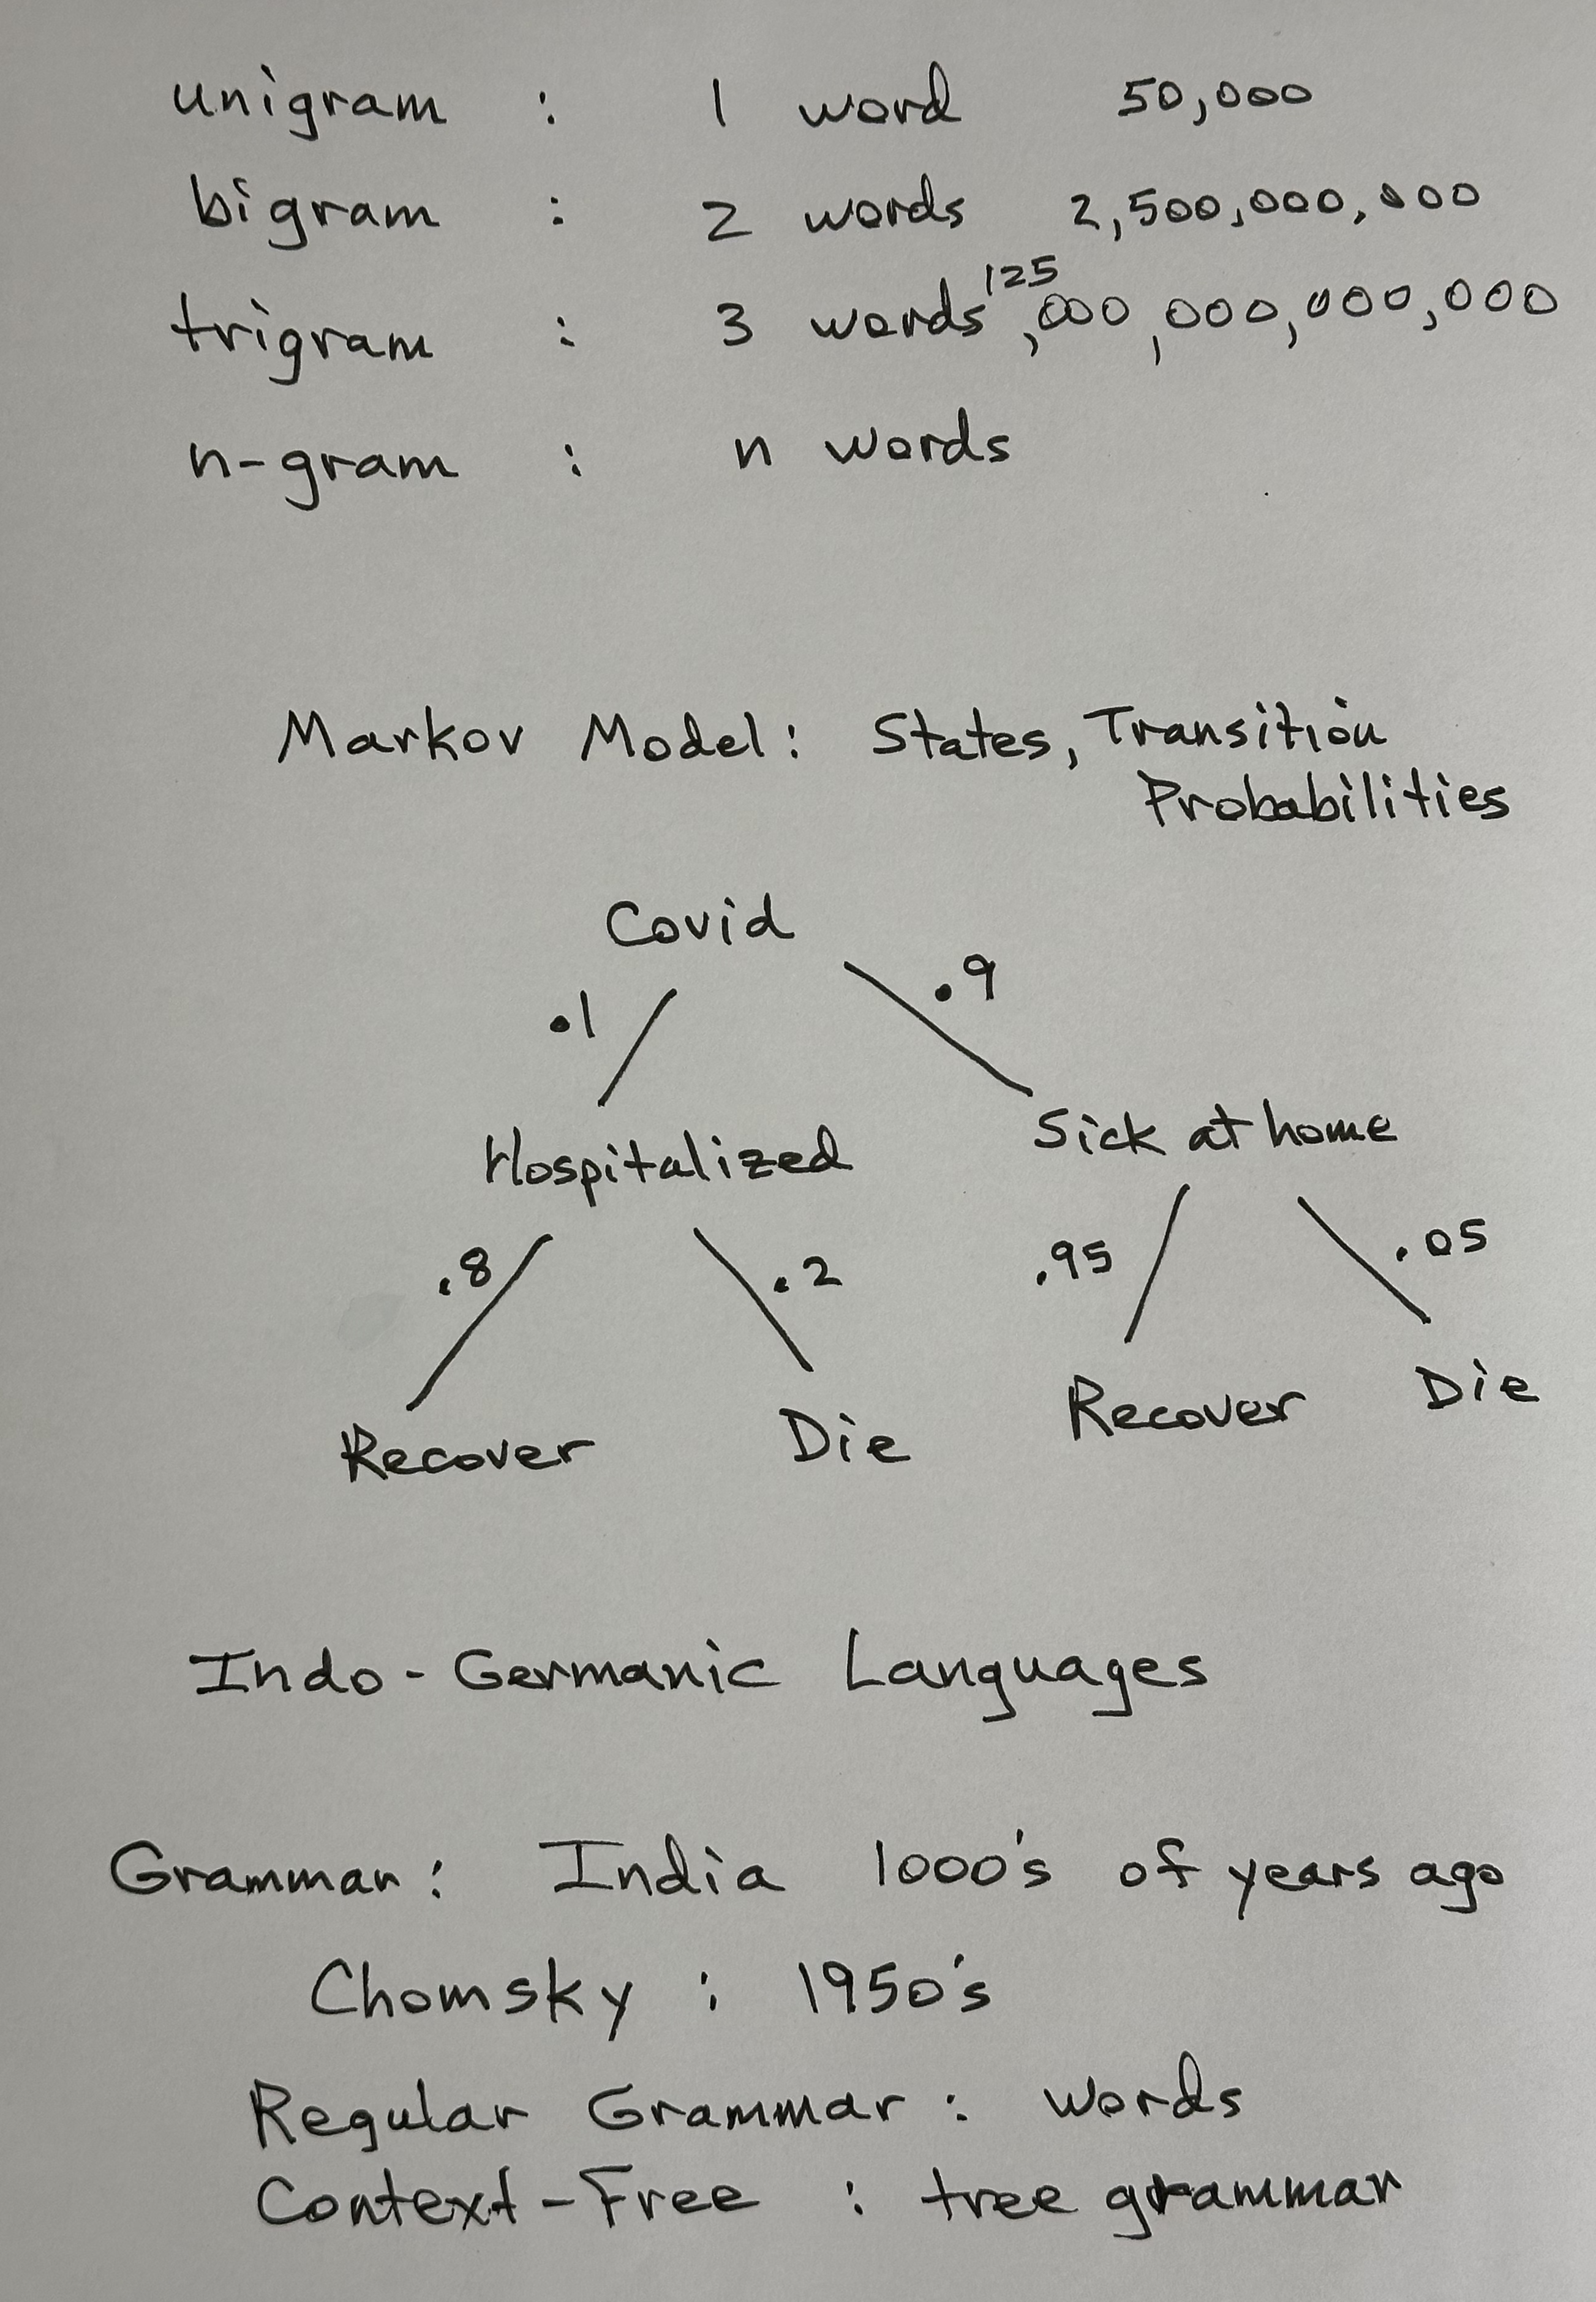 unigram : 1 word 50,000
bigram : 2 words 2,500,000,000
trigram : 3 words 125,000,000,000,000
n-gram : n words
Markov Model: States, Transition
Probabilities
Covid
.1 .9
Hospitalized Sick at home
.8 .2 .95 .05
Recover Die Recover Die
Indo-Germanic Languages
Grammar: India 1000's of years ago
Chomsky : 1950's
Regular Grammar : words
Context-Free : tree grammar